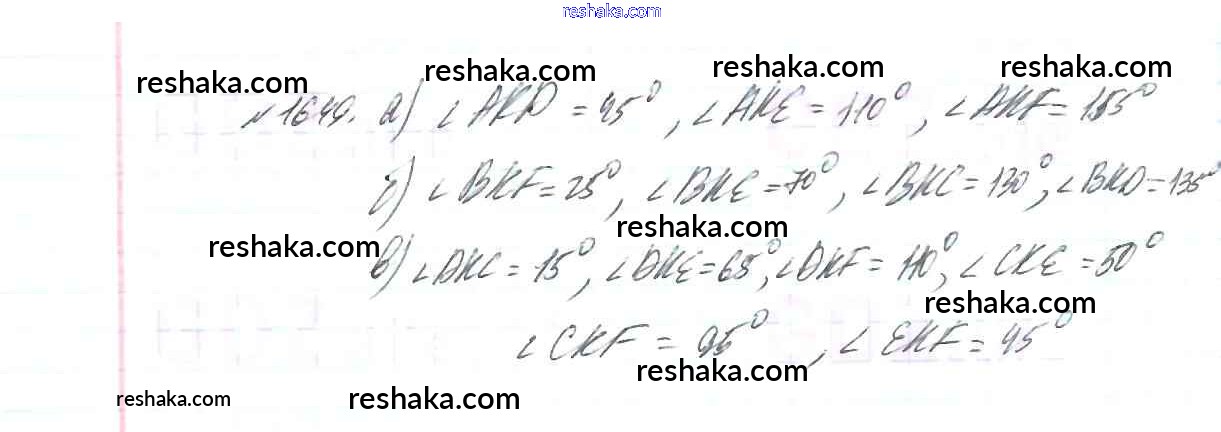 reshaka.com
reshaka.com reshaka.com reshaka.com reshaka.com
№1649. а) ∠AKD = 45°, ∠AKE = 110°, ∠AKF = 155°
б) ∠BKF = 25°, ∠BKE = 70°, ∠BKC = 130°, ∠BKD = 135°
reshaka.com reshaka.com
в) ∠DKC = 15°, ∠DKE = 65°, ∠DKF = 110°, ∠CKE = 50°
reshaka.com
∠CKF = 95°, ∠EKF = 45°
reshaka.com reshaka.com reshaka.com